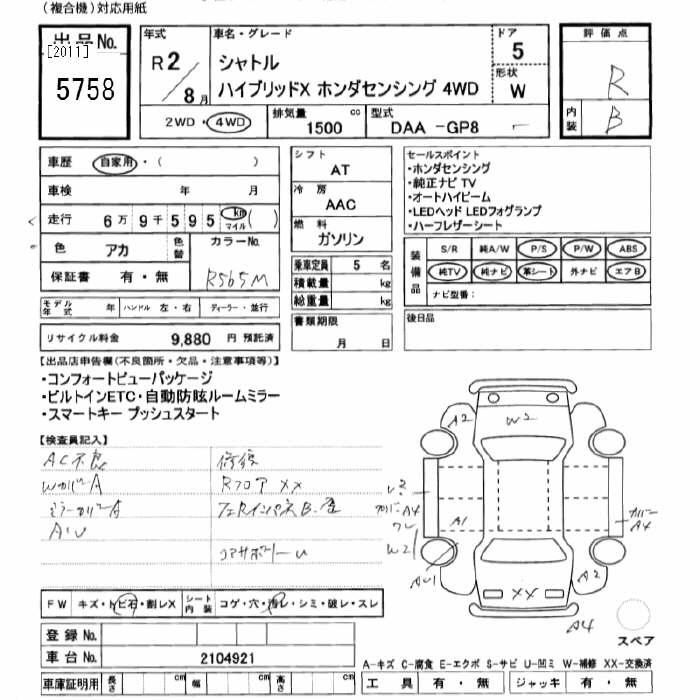 (複合機)対応用紙
出品No.
[2011]
5758
年式
R2/8月
車名・グレード
シャトル
ハイブリッドX ホンダセンシング 4WD
ドア
5
形状
W
2WD・4WD
排気量
1500 cc
型式
DAA -GP8
評価点
R
内装
B
車歴 自家用・( )
車検 年 月
走行 6万9千595 km マイル ( )
色 アカ 色替 カラーNo.
保証書 有・無 R565M
モデル年式 年 ハンドル 左・右 ディーラー・並行
リサイクル料金 9,880 円 預託済
シフト
AT
冷房
AAC
燃料
ガソリン
乗車定員 5 名
積載量 kg
総重量 kg
書類期限
月 日
セールスポイント
・ホンダセンシング
・純正ナビ TV
・オートハイビーム
・LEDヘッド LEDフォグランプ
・ハーフレザーシート
装備品
S/R 純A/W P/S P/W ABS
純TV 純ナビ 革シート 外ナビ エアB
ナビ型番:
後日品
【出品店申告欄(不良箇所・欠品・注意事項等)】
・コンフォートビューパッケージ
・ビルトインETC・自動防眩ルームミラー
・スマートキー プッシュスタート
【検査員記入】
AC不良
WカバーA
ミラーカバーA
A1U
修復
Rフロア XX
コアサポートU
A2
W2
A1
W2
A2
XX
A4
カバー
A4
スペア
FW キズ・トビ石・割レX シート内装 コゲ・穴・汚レ・シミ・破レ・スレ
登録No.
車台No. 2104921
車庫証明用 長さ cm 幅 cm 高さ cm
A-キズ C-腐食 E-エクボ S-サビ U-凹ミ W-補修 XX-交換済
工具 有・無 ジャッキ 有・無